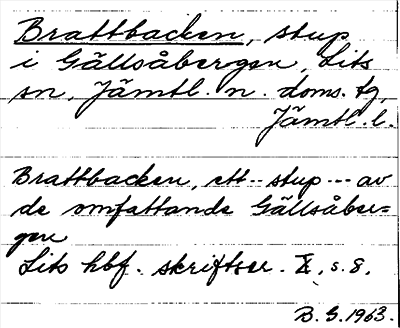 Brattbacken, stup
i Gällsåbergen, Lits
sn, Jämtl. n. doms. tg,
Jämtl. l.
Brattbacken, ett -- stup --- av
de omfattande Gällsåber=
gen
Lits hbf. skriftser. X, s. 8.
B. G. 1963.